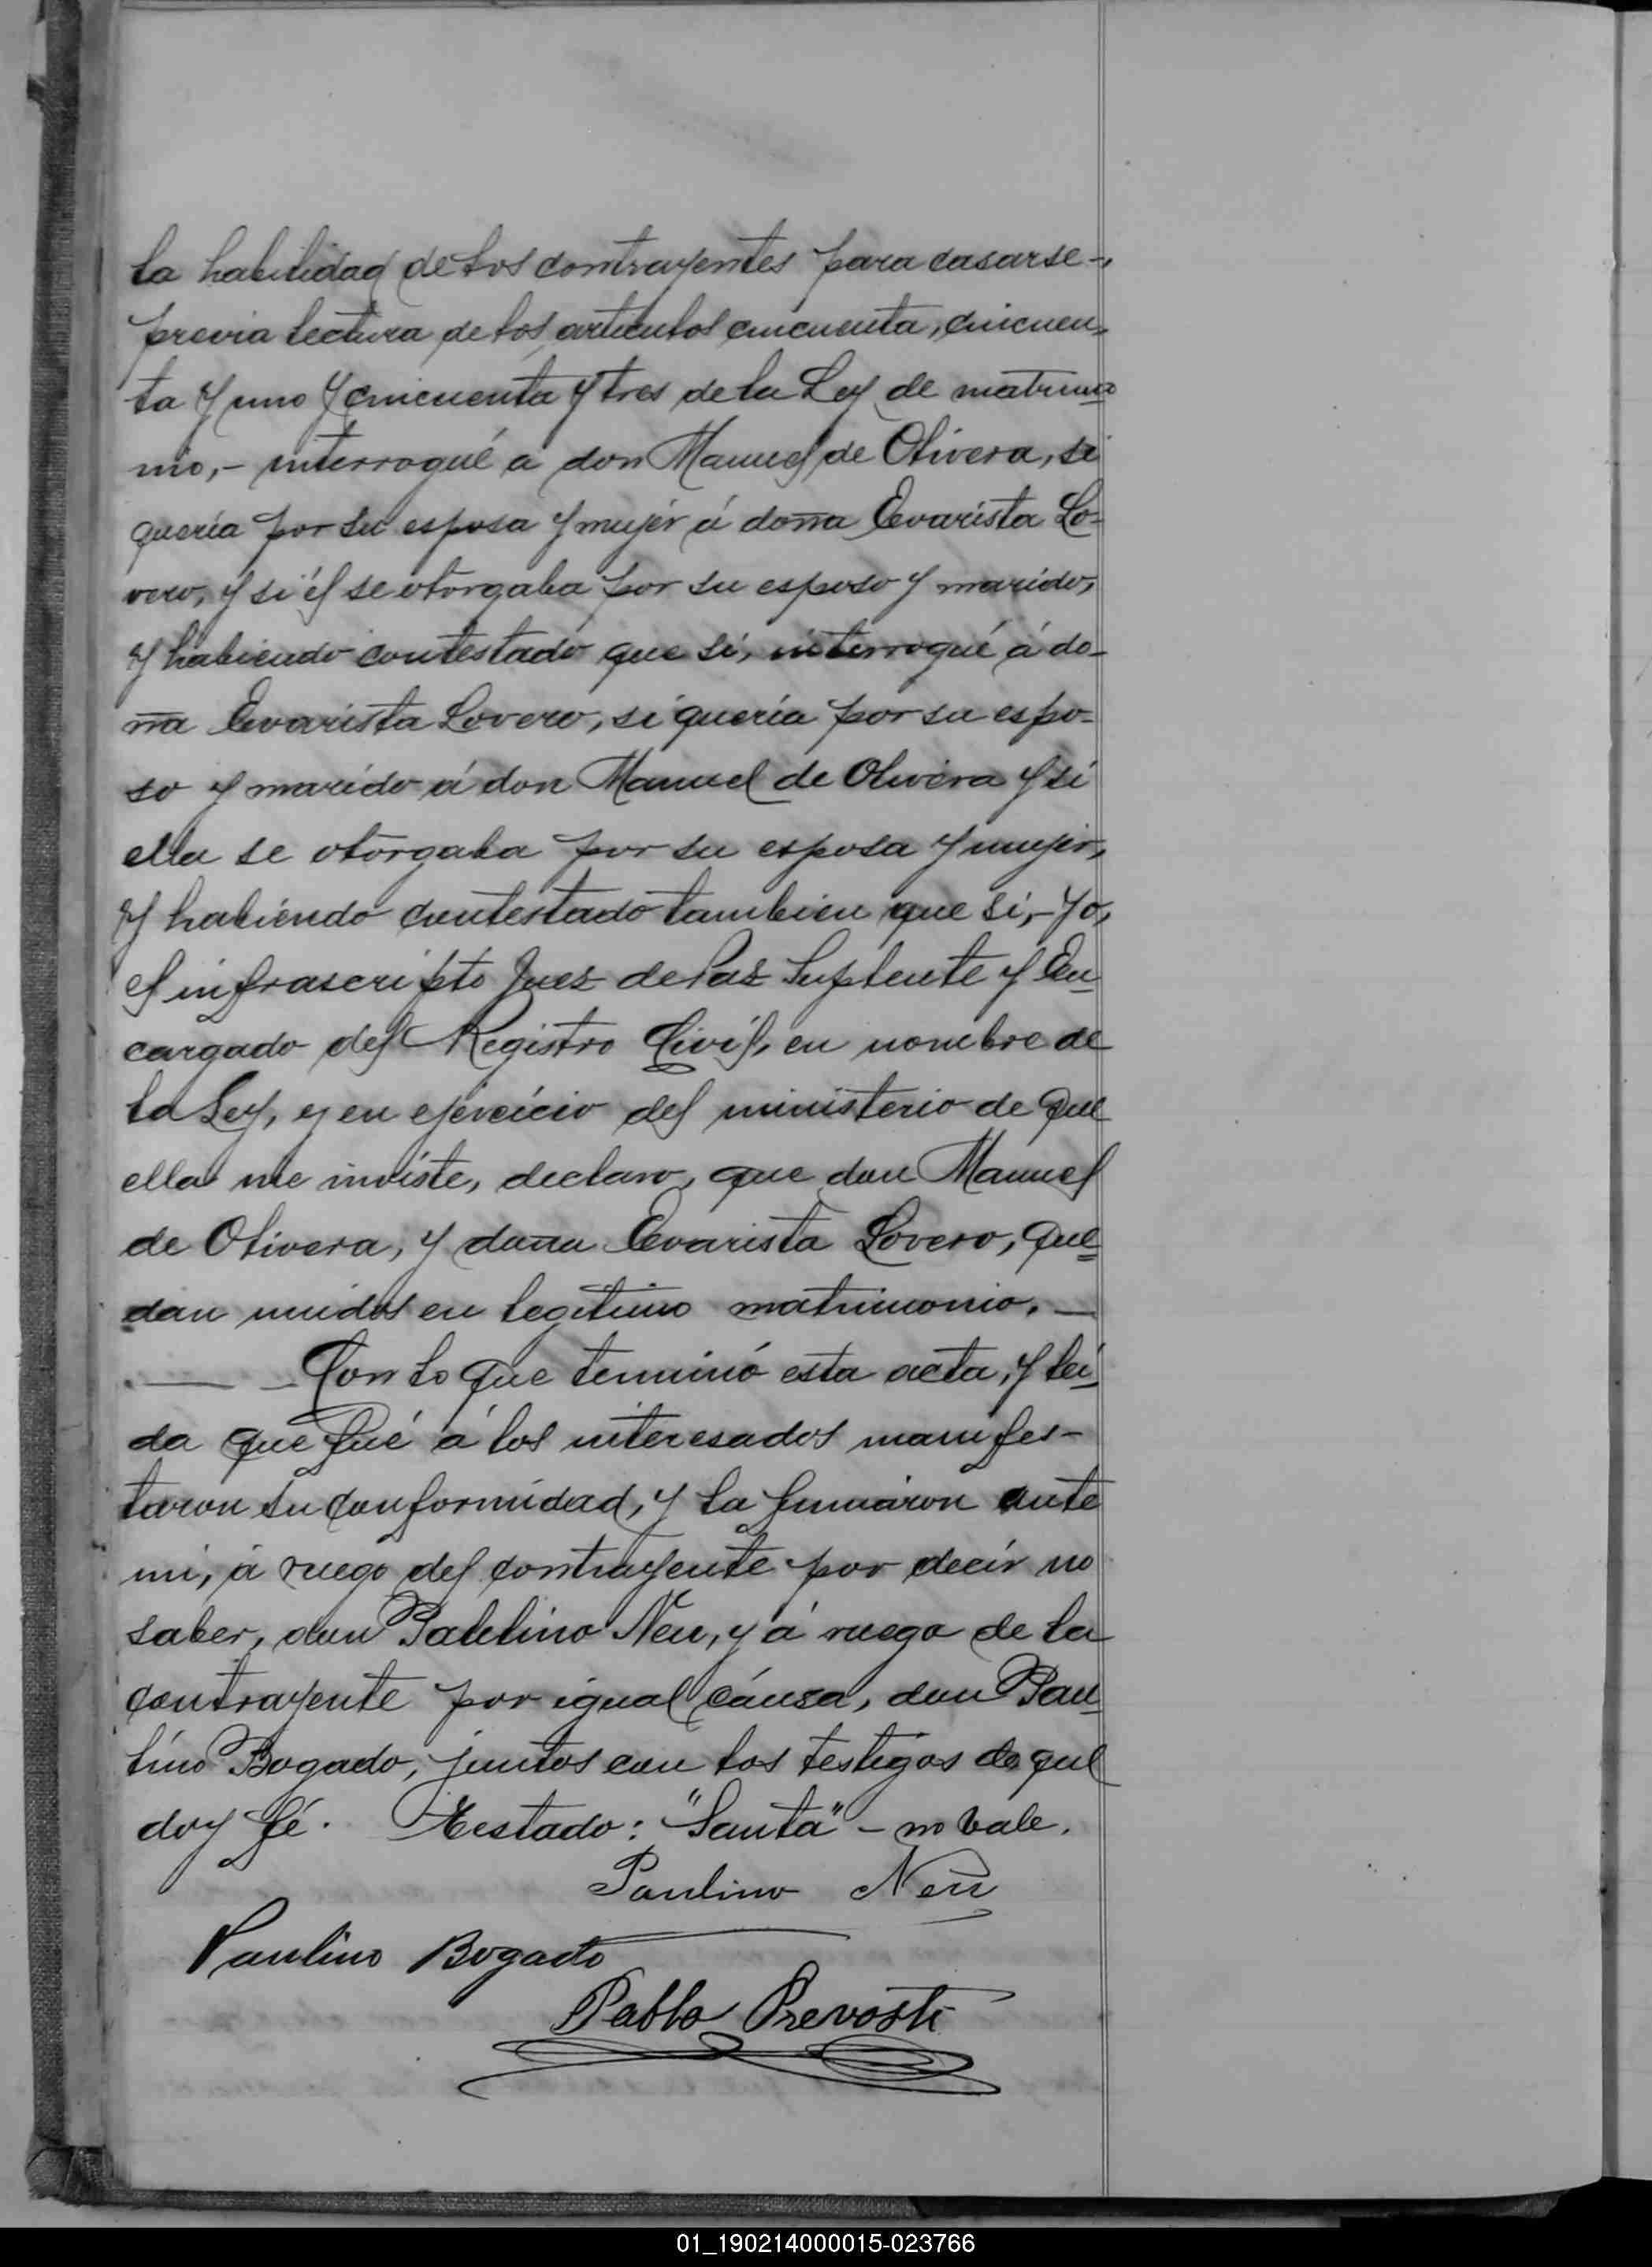 la habilidad de los contrayentes para casarse-,
previa lectura de los articulos cincuenta, cincuen-
ta y uno y cincuenta y tres de la Ley de matrimo
nio,- interrogué a don Manuel de Olivera, si
quería por su esposa y mujer á doña Evarista Lo-
vero, y si él se otorgaba por su esposo y marido,
y habiendo contestado que si, interrogué á do-
ña Evarista Lovero, si quería por su espo-
so y marido á don Manuel de Olivera y si
ella se otorgaba por su esposa y mujer,
y habiendo contestado tambien que si,- yo,
el infrascripto Juez de Paz Suplente y En
cargado del Registro Civil, en nombre de
la Ley, y en ejercicio del ministerio de que
ella me inviste, declaro, que don Manuel
de Olivera, y doña Evarista Lovero, que
dan unidos en legitimo matrimonio. —
— Con lo que terminó esta acta, y leí
da que fué á los interesados manifes-
taron su conformidad, y la firmaron ante
mi, á ruego del contrayente por decir no
saber, don Paulino Neu, y á ruego de la
contrayente por igual cáusa, don Pau
lino Bogado, juntos con los testigos de que
doy fé. Testado: "Santa" - no vale.
Paulino Neu
Paulino Bogado
Pablo Prevosti
01_190214000015-023766